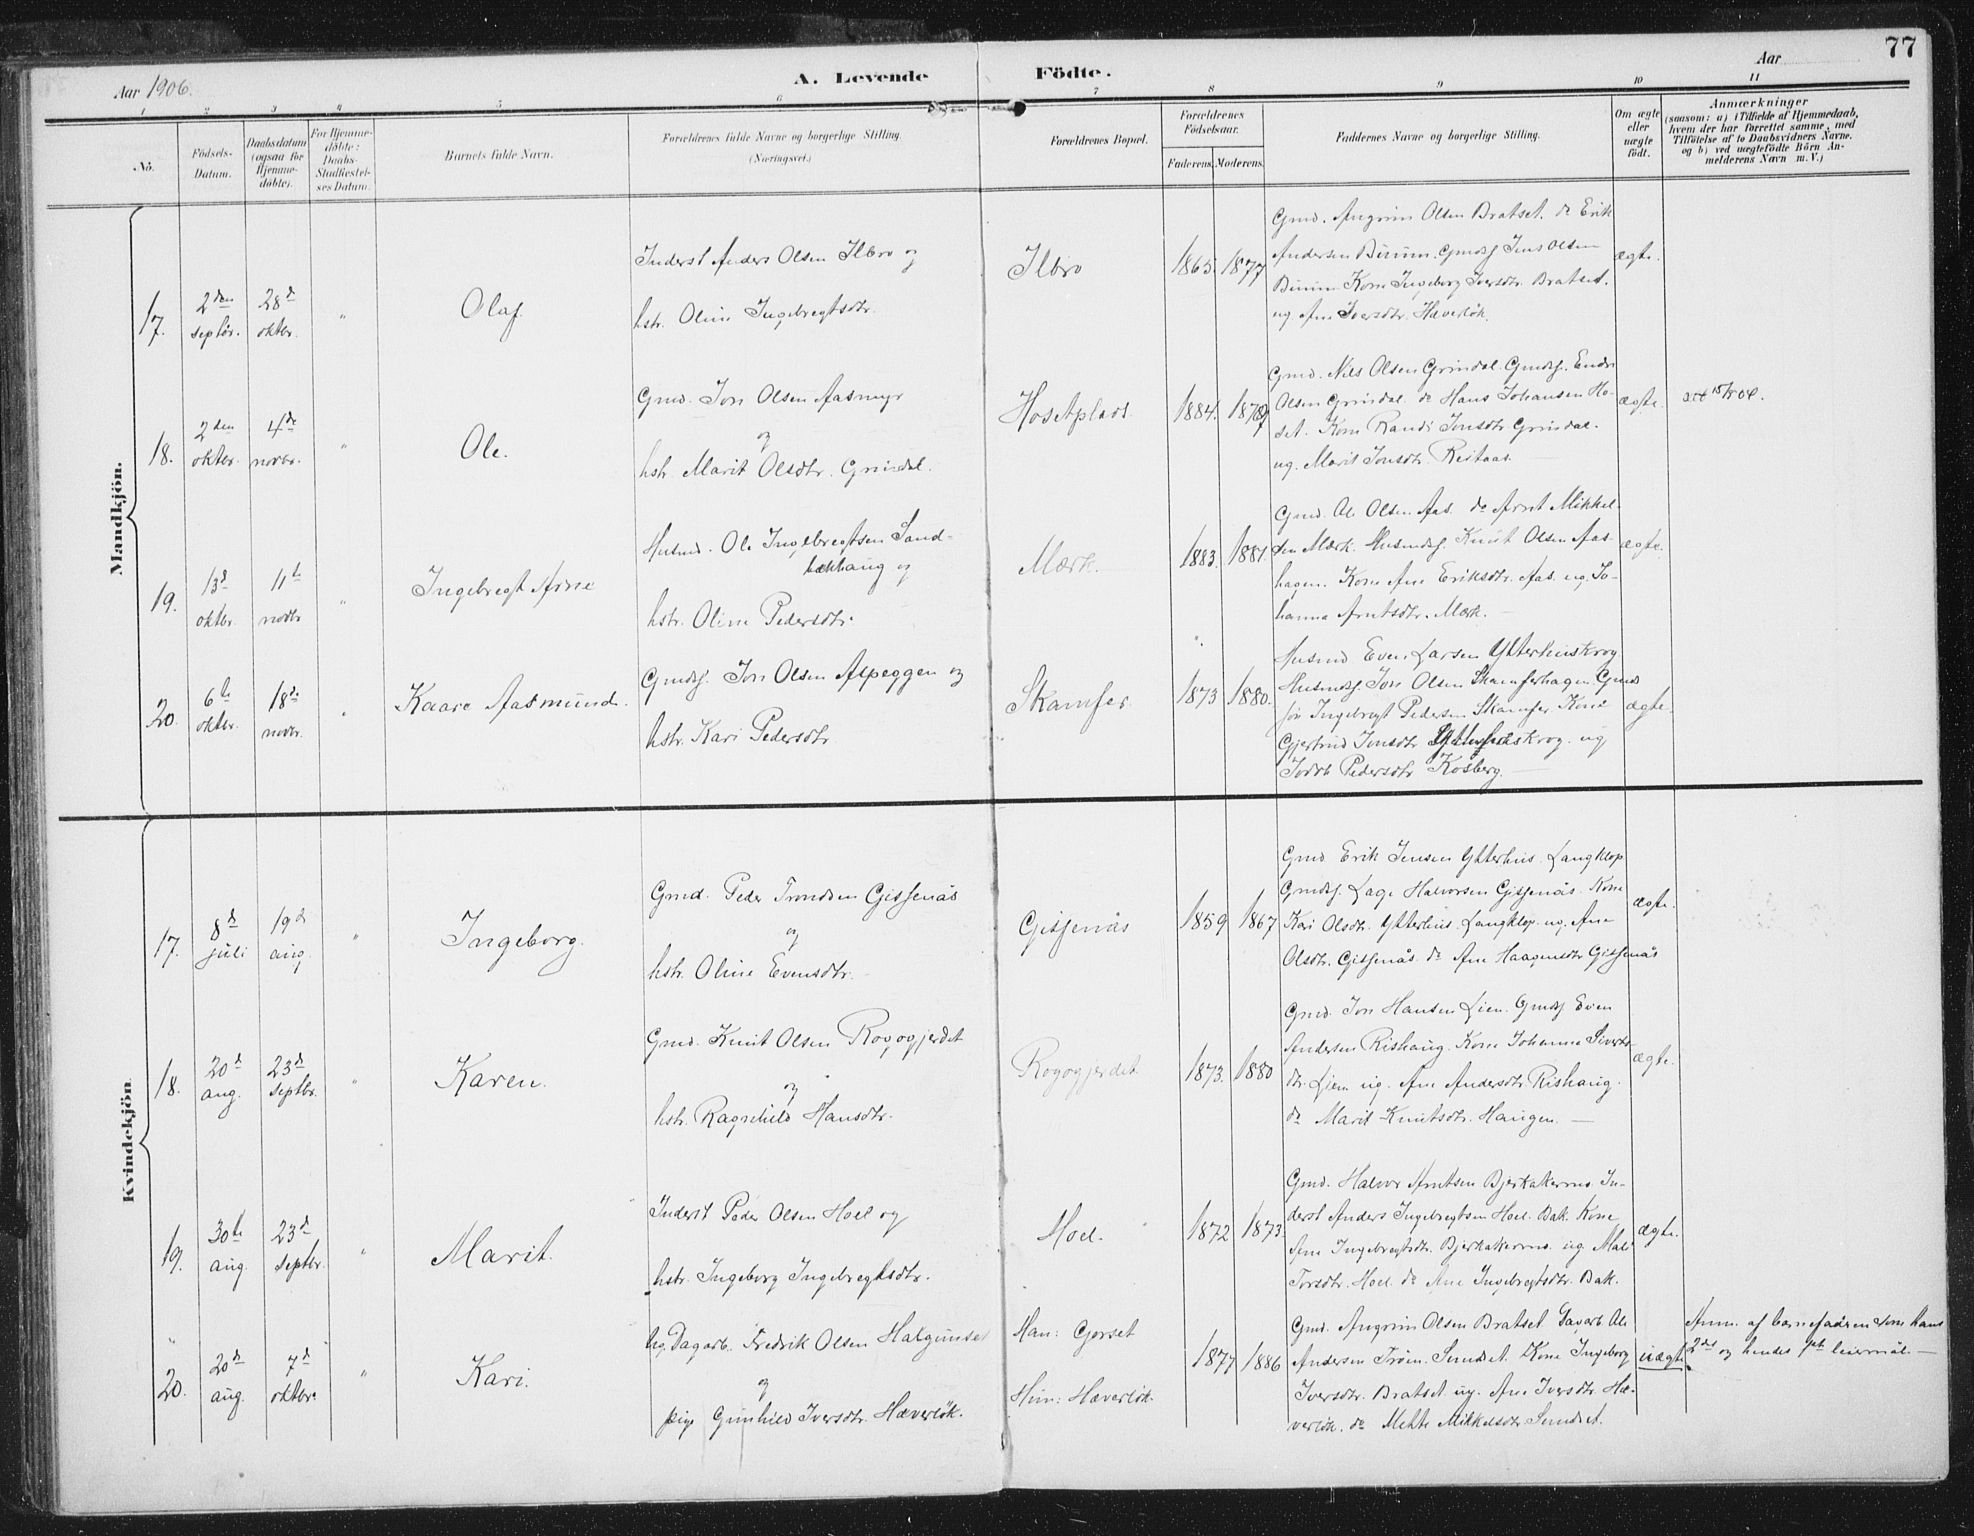 77
Aar 1906.
A. Levende Födte.
Aar
1 2 3 4 5 6 7 8 9 10 11
No.
Födsels-Datum.
Daabsdatum (ogsaa for Hjemme-döbte).
For Hjemme-döbte: Daabs-Stadfæstel-ses Datum.
Barnets fulde Navn.
Forældrenes fulde Navne og borgerlige Stilling.
(Næringsvei.)
Forældrenes Bopæl.
Forældrenes Födselsaar.
Faderens. Moderens.
Faddernes Navne og borgerlige Stilling.
Om ægte eller uægte födt.
Anmærkninger
(saasom: a) i Tilfælde af Hjemmedaab,
hvem der har forrettet samme, med
Tilföielse af to Daabsvidners Navne.
og b) ved uægtefödte Börn An-
melderens Navn m. V.)
Mandkjön.
17.
2den septbr.
28d oktbr.
"
Olaf.
Inderst Anders Olsen Ilbro og
hstr. Oline Ingebregtsdtr.
Ilbro
1865. 1877
Gmd. Angrim Olsen Bratset. do Erik
Andersen Bunn. Gmdsf Jens Olsen
Bunn. Kone Ingeborg Iversdtr. Bratset.
ug. Ane Iversdtr. Hæverlök.
ægte.
18.
2den oktbr.
4de novbr.
"
Ole.
Gmd. Jon Olsen Aasmyr
og
hstr. Marit Olsdtr. Grindal.
Hosetplads.
1884.
Gmd. Nils Olsen Grindal. Gmdsf. Endre
Olsen Grindal. do Hans Johansen Ho-
set. Kone Randi Jonsdtr. Grindal.
ug. Marit Jonsdtr. Reitaas.
ægte.
19.
13d oktbr.
11te novbr
"
Ingebregt Arne
Husmd. Ole Ingebregtsen Sand-
bækhaug og
hstr. Oline Pedersdtr.
Mærk.
1883. 1881.
Gmd. Ole Olsen Aas. do Arnt Mikkel-
sen Mærk. Husmdsf. Knut Olsen Aas-
hagen. Kone Ane Eriksdtr. Aas. ug. Jo-
hanna Arntsdtr. Mærk.
ægte.
20.
6te oktbr.
18de novbr.
"
Kaare Aasmund.
Gmdsf. Jon Olsen Aspeggen og
hstr. Kari Pedersdtr
Skamfer
1873 1880.
Husmd Even Larsen Ytterhuskrog
Husmdsf. Jon Olsen Skamferhagen. Gmds
sön Ingebregt Pedersen Skamfer. Kone
Gjertrud Jonsdtr Ytterhuskrog. ug
Pedersdtr Kosberg.
ægte.
Kvindekjön.
17.
8d juli
19d aug.
"
Ingeborg.
Gmd. Peder Trondsen Gisnäs
og
hstr. Oline Evensdtr.
Gisnäs
1859 1867
Gmd. Erik Jensen Ytterhus. Langklop
Gmdsf. Lage Halvorsen Gisnäs. Kone
Kari Olsdtr. Ytterhus. Langklop. ug. Ane
Olsdtr. Gisnäs. do Ane Haagensdtr Gisnäs
ægte.
18.
20d aug.
23d septbr.
"
Karen.
Gmd. Knut Olsen Rogogjerdet
og
hstr. Ragnhild Hansdtr.
Rogogjerdet
1873. 1880
Gmd. Jon Hansen Lien. Gmdsf Even
Andersen Rishaug. Kone Johanne Siverts-
dtr. Lien ug. Ane Andersdtr Rishaug.
do Marit Knutsdtr. Haugen.
ægte.
19.
30te aug.
23d septbr.
"
Marit.
Inderst Peder Olsen Hoel og
hstr. Ingeborg Ingebregtsdtr.
Hoel.
1872 1873.
Gmd. Halvor Arntsen Bjerkakermo. In-
derst Anders Ingebregtsen Hoel. Bak. Kone
Ane Ingebregtsdtr. Bjerkakermo. ug. Mali
Torsdtr. Hoel. do Ane Ingebregtsdtr. Bak.
ægte.
20.
20d aug.
7d oktbr.
"
Kari.
Ug. Dagarb. Fredrik Olsen Halgunset
og
pige Gunhild Iversdtr. Hæverlök.
Han: Gorset
Hun: Hæverlök.
1877 1886
Gmd. Angrim Olsen Bratset. Gaarb. Ole
Andersen Trøen. Sundset. Kone Ingeborg
Iversdtr. Bratset. ug. Ane Iversdtr. Hæ-
verlök. do Mehte Mikkelsdtr. Sundset.
uægte.
Anm. af barnefaderen som hans
2det og hendes 1ste leiermål